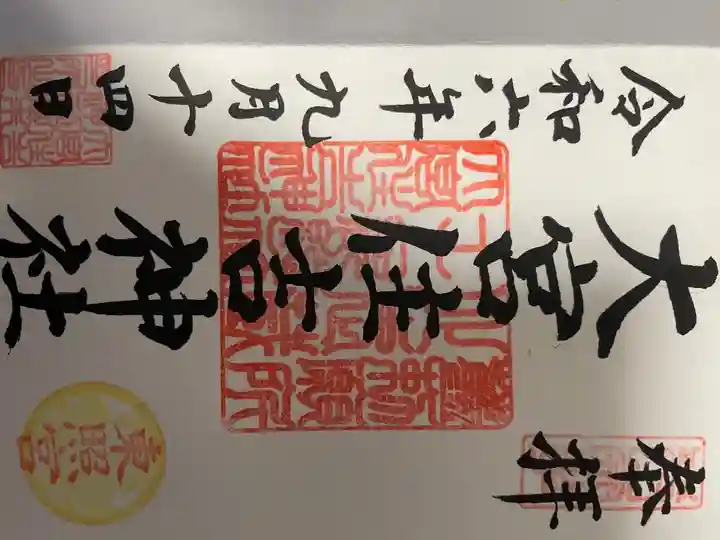 奉拝
大宮住吉神社
令和六年九月十四日
東照宮